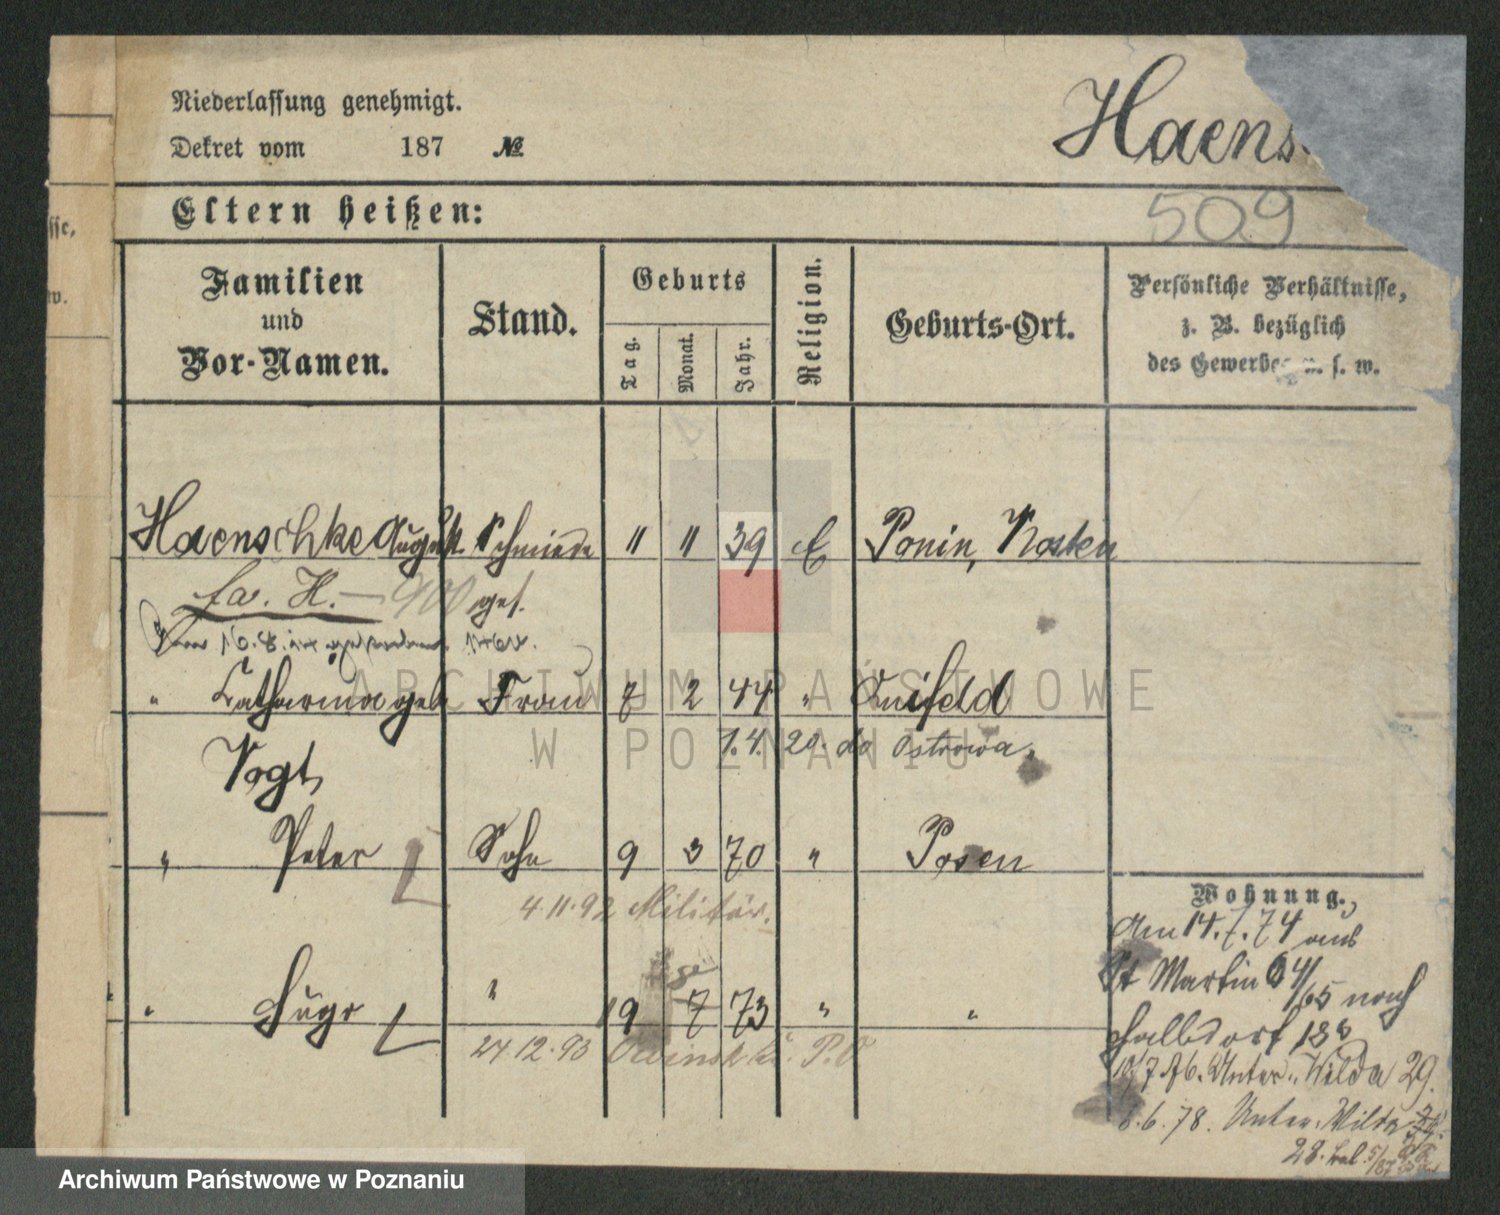 Niederlassung genehmigt.
Haens
Dekret vom 187 №
Eltern heißen:
509
sse,
w.
Familien
und
Vor-Namen.
Stand.
Geburts
Tag. Monat. Jahr.
Religion.
Geburts-Ort.
Persönliche Verhältnisse,
z. B. bezüglich
des Gewerbes u. s. w.
Haenschke August Schmiede " " 39 E Ponin, Kosten
fa. H. — 900 gef.
16.8.
" Catharina geb Frau 7 2 44 "
Vogt
1.4. 29. do Ostrowa
" Peter Sohn 9 3 70 " Posen
4.11.92 Militär.
" Hugo " 19 7 73 " "
24.12.93 P.O
Wohnung.
Am 14.7.74 aus
St Martin 64/65 nach
Halbdorf 18b
10/7.76. Unter-Wilda 29.
6.6.78. Unter-Wilda
28.
ARCHIWUM PAŃSTWOWE
W POZNANIU
Archiwum Państwowe w Poznaniu